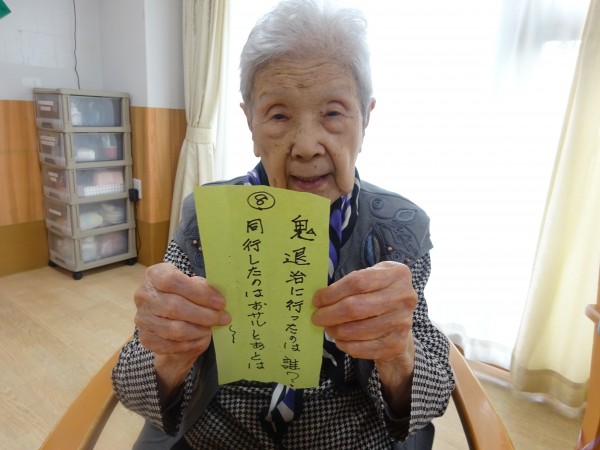 ⑧
鬼退治に行ったのは誰?
同行したのはおサルとあとは〜